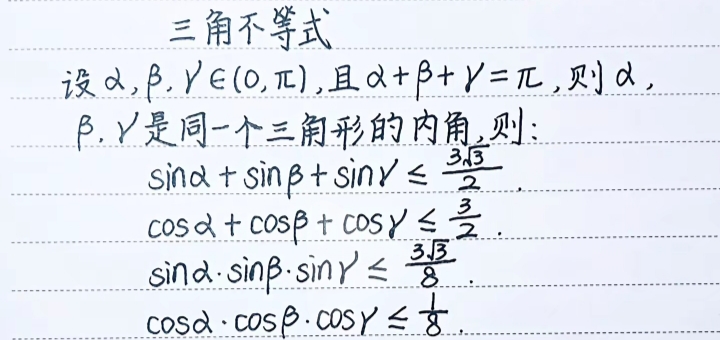 三角不等式
设α,β,γ∈(0,π),且α+β+γ=π,则α,
β,γ是同一个三角形的内角,则:
sinα+sinβ+sinγ≤3√3/2.
cosα+cosβ+cosγ≤3/2.
sinα·sinβ·sinγ≤3√3/8.
cosα·cosβ·cosγ≤1/8.